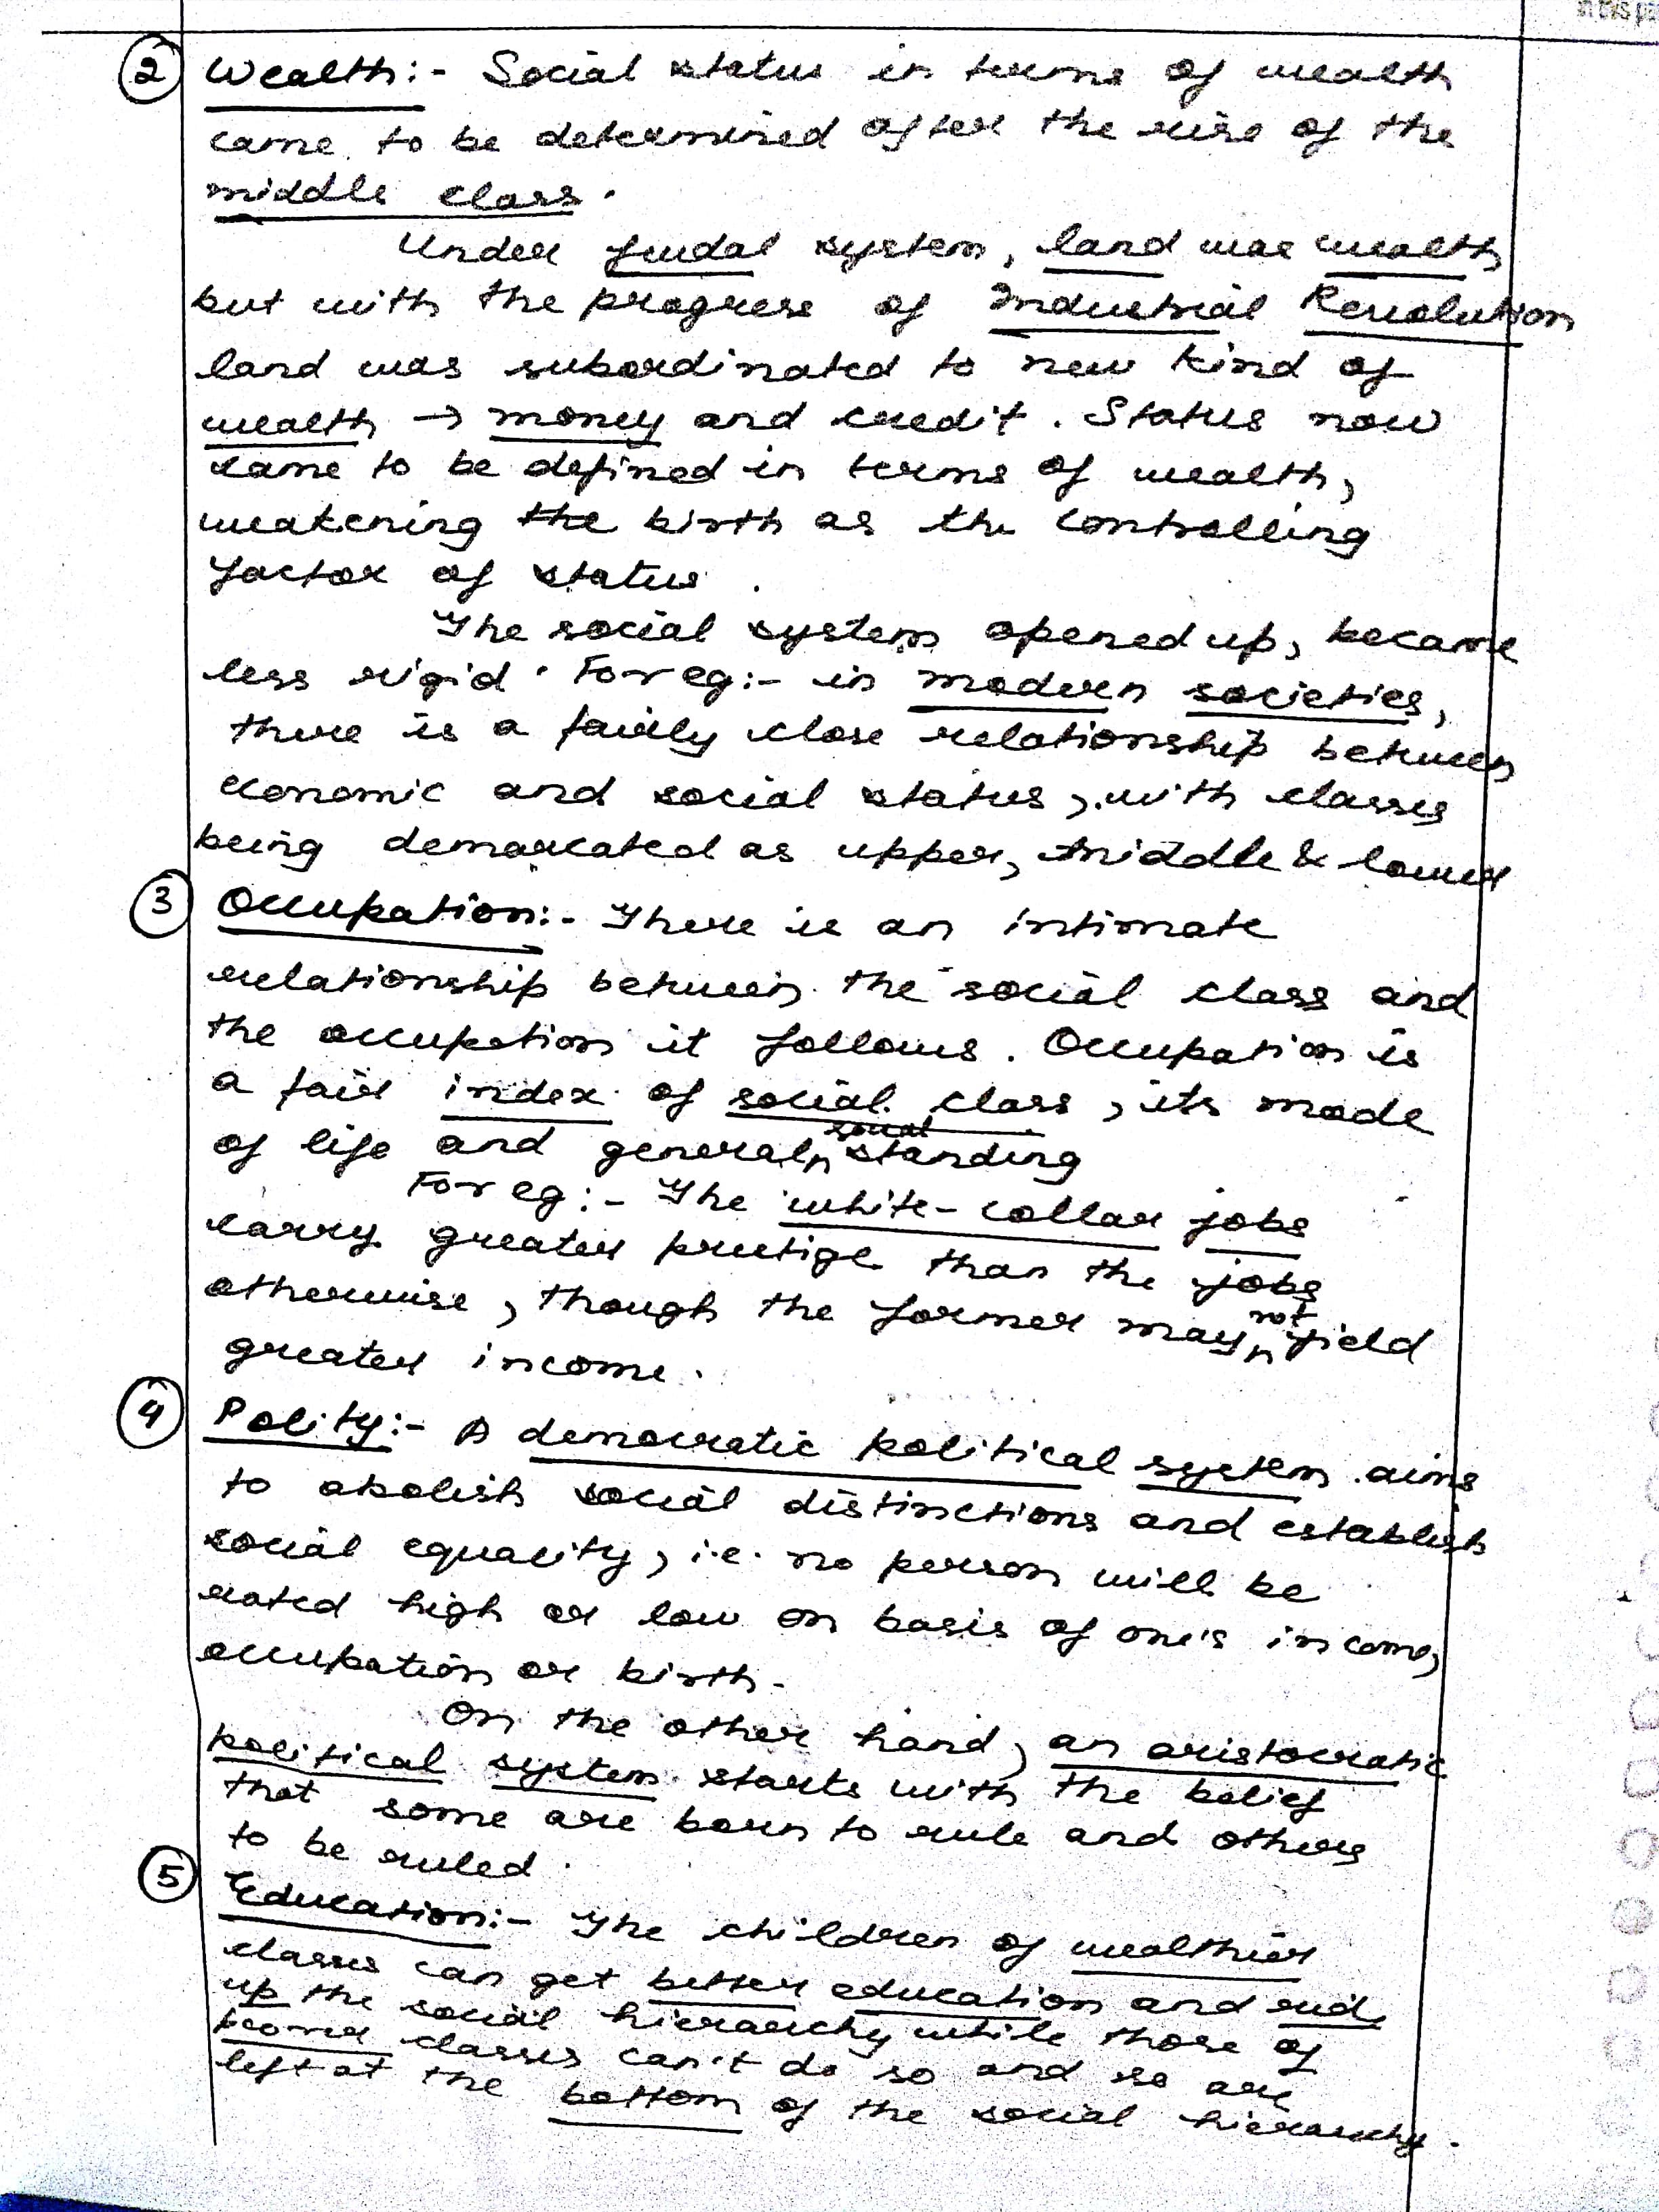 in this pa
② Wealth:- Social status in terms of wealth
came to be determined after the rise of the
middle class.
Under feudal system, land was wealth
but with the progress of Industrial Revolution
land was subordinated to new kind of
wealth → money and credit. Status now
came to be defined in terms of wealth,
weakening the birth as the controlling
factor of status.
The social system opened up, became
less rigid. For eg:- in modern societies,
there is a fairly close relationship between
economic and social status, with classes
being demarcated as upper, middle & lower
③ Occupation:- There is an intimate
relationship between the social class and
the occupation it follows. Occupation is
a fair index of social class, its mode
of life and general social standing
For eg:- The white-collar jobs
carry greater prestige than the jobs
otherwise, though the former may not yield
greater income.
④ Polity:- A democratic political system aims
to abolish social distinctions and establish
social equality, i.e. no person will be
rated high or low on basis of one's income,
occupation or birth.
On the other hand, an aristocratic
political system starts with the belief
that some are born to rule and others
to be ruled.
⑤ Education:- The children of wealthier
classes can get better education and
up the social hierarchy while those of
poorer classes can't do so and so are
left at the bottom of the social hierarchy.